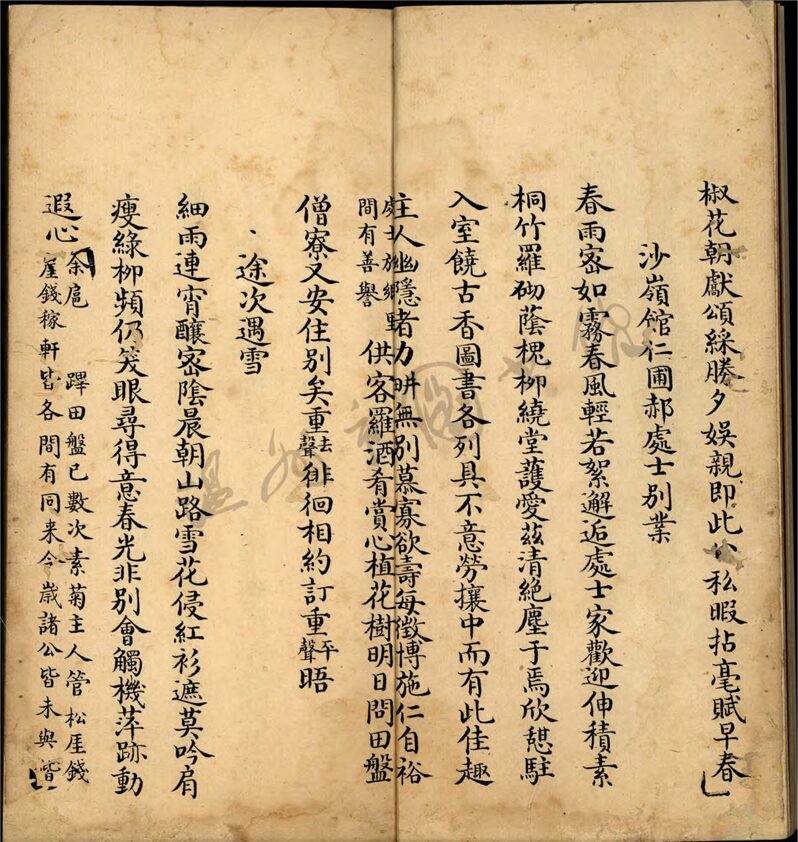 椒花朝獻頌綵勝夕娛親即此公私暇拈毫賦早春
沙嶺館仁圃郝處士別業
春雨密如霧春風輕若絮邂逅處士家歡迎伸積素
桐竹羅砌蔭槐柳繞堂護愛茲清絕塵于焉欣憩駐
入室饒古香圖書各列具不意勞攘中而有此佳趣
主人幽隱者力耕無別慕寡欲壽每徵博施仁自裕
處士於鄉里間有善譽
供客羅酒肴賞心植花樹明日問田盤
僧寮又安住別矣重去聲徘徊相約訂重平聲晤
途次遇雪
細雨連宵釀密陰晨朝山路雪花侵紅衫遮莫吟肩
瘦綠柳頻仍笑眼尋得意春光非別會觸機萍跡動
遐心余扈蹕田盤已數次素菊主人管松厓錢
崖錢稼軒皆各間有同来今歲諸公皆未與偕